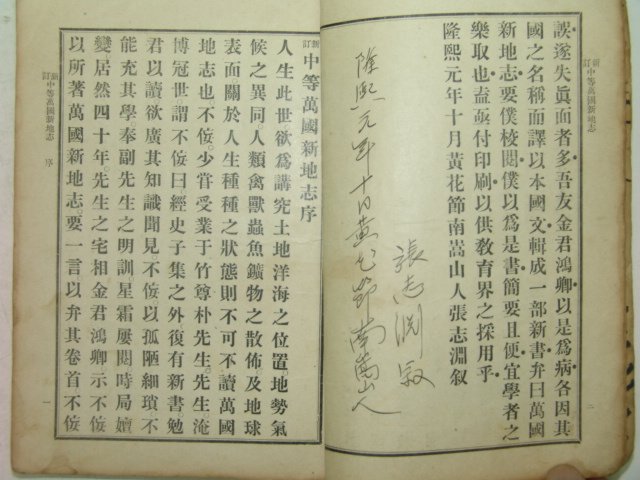 新訂中等萬國新地志
誤遂失眞面者多吾友金君鴻卿以是爲病各因其
國之名稱而譯以本國文輯成一部新書弁曰萬國
新地志要僕校閱僕以爲是書簡要且便宜學者之
樂取也亟亟付印刷以供敎育界之採用乎
隆熙元年十月黃花節南嵩山人張志淵叙
二
張志淵叙
隆熙元年十月黃花節南嵩山人
新訂中等萬國新地志序
人生此世欲爲講究土地洋海之位置地勢氣
候之異同人類禽獸蟲魚鑛物之散佈及地球
表面關於人生種種之狀態則不可不讀萬國
地志也不侫少甞受業于竹尊朴先生先生淹
博冠世謂不侫曰經史子集之外復有新書勉
君以讀欲廣其知識聞見不侫以孤陋細瑣不
能充其學奉副先生之明訓星霜屢閱時局嬗
變居然四十年先生之宅相金君鴻卿示不侫
以所著萬國新地志要一言以弁其卷首不侫
新訂中等萬國新地志 序
一